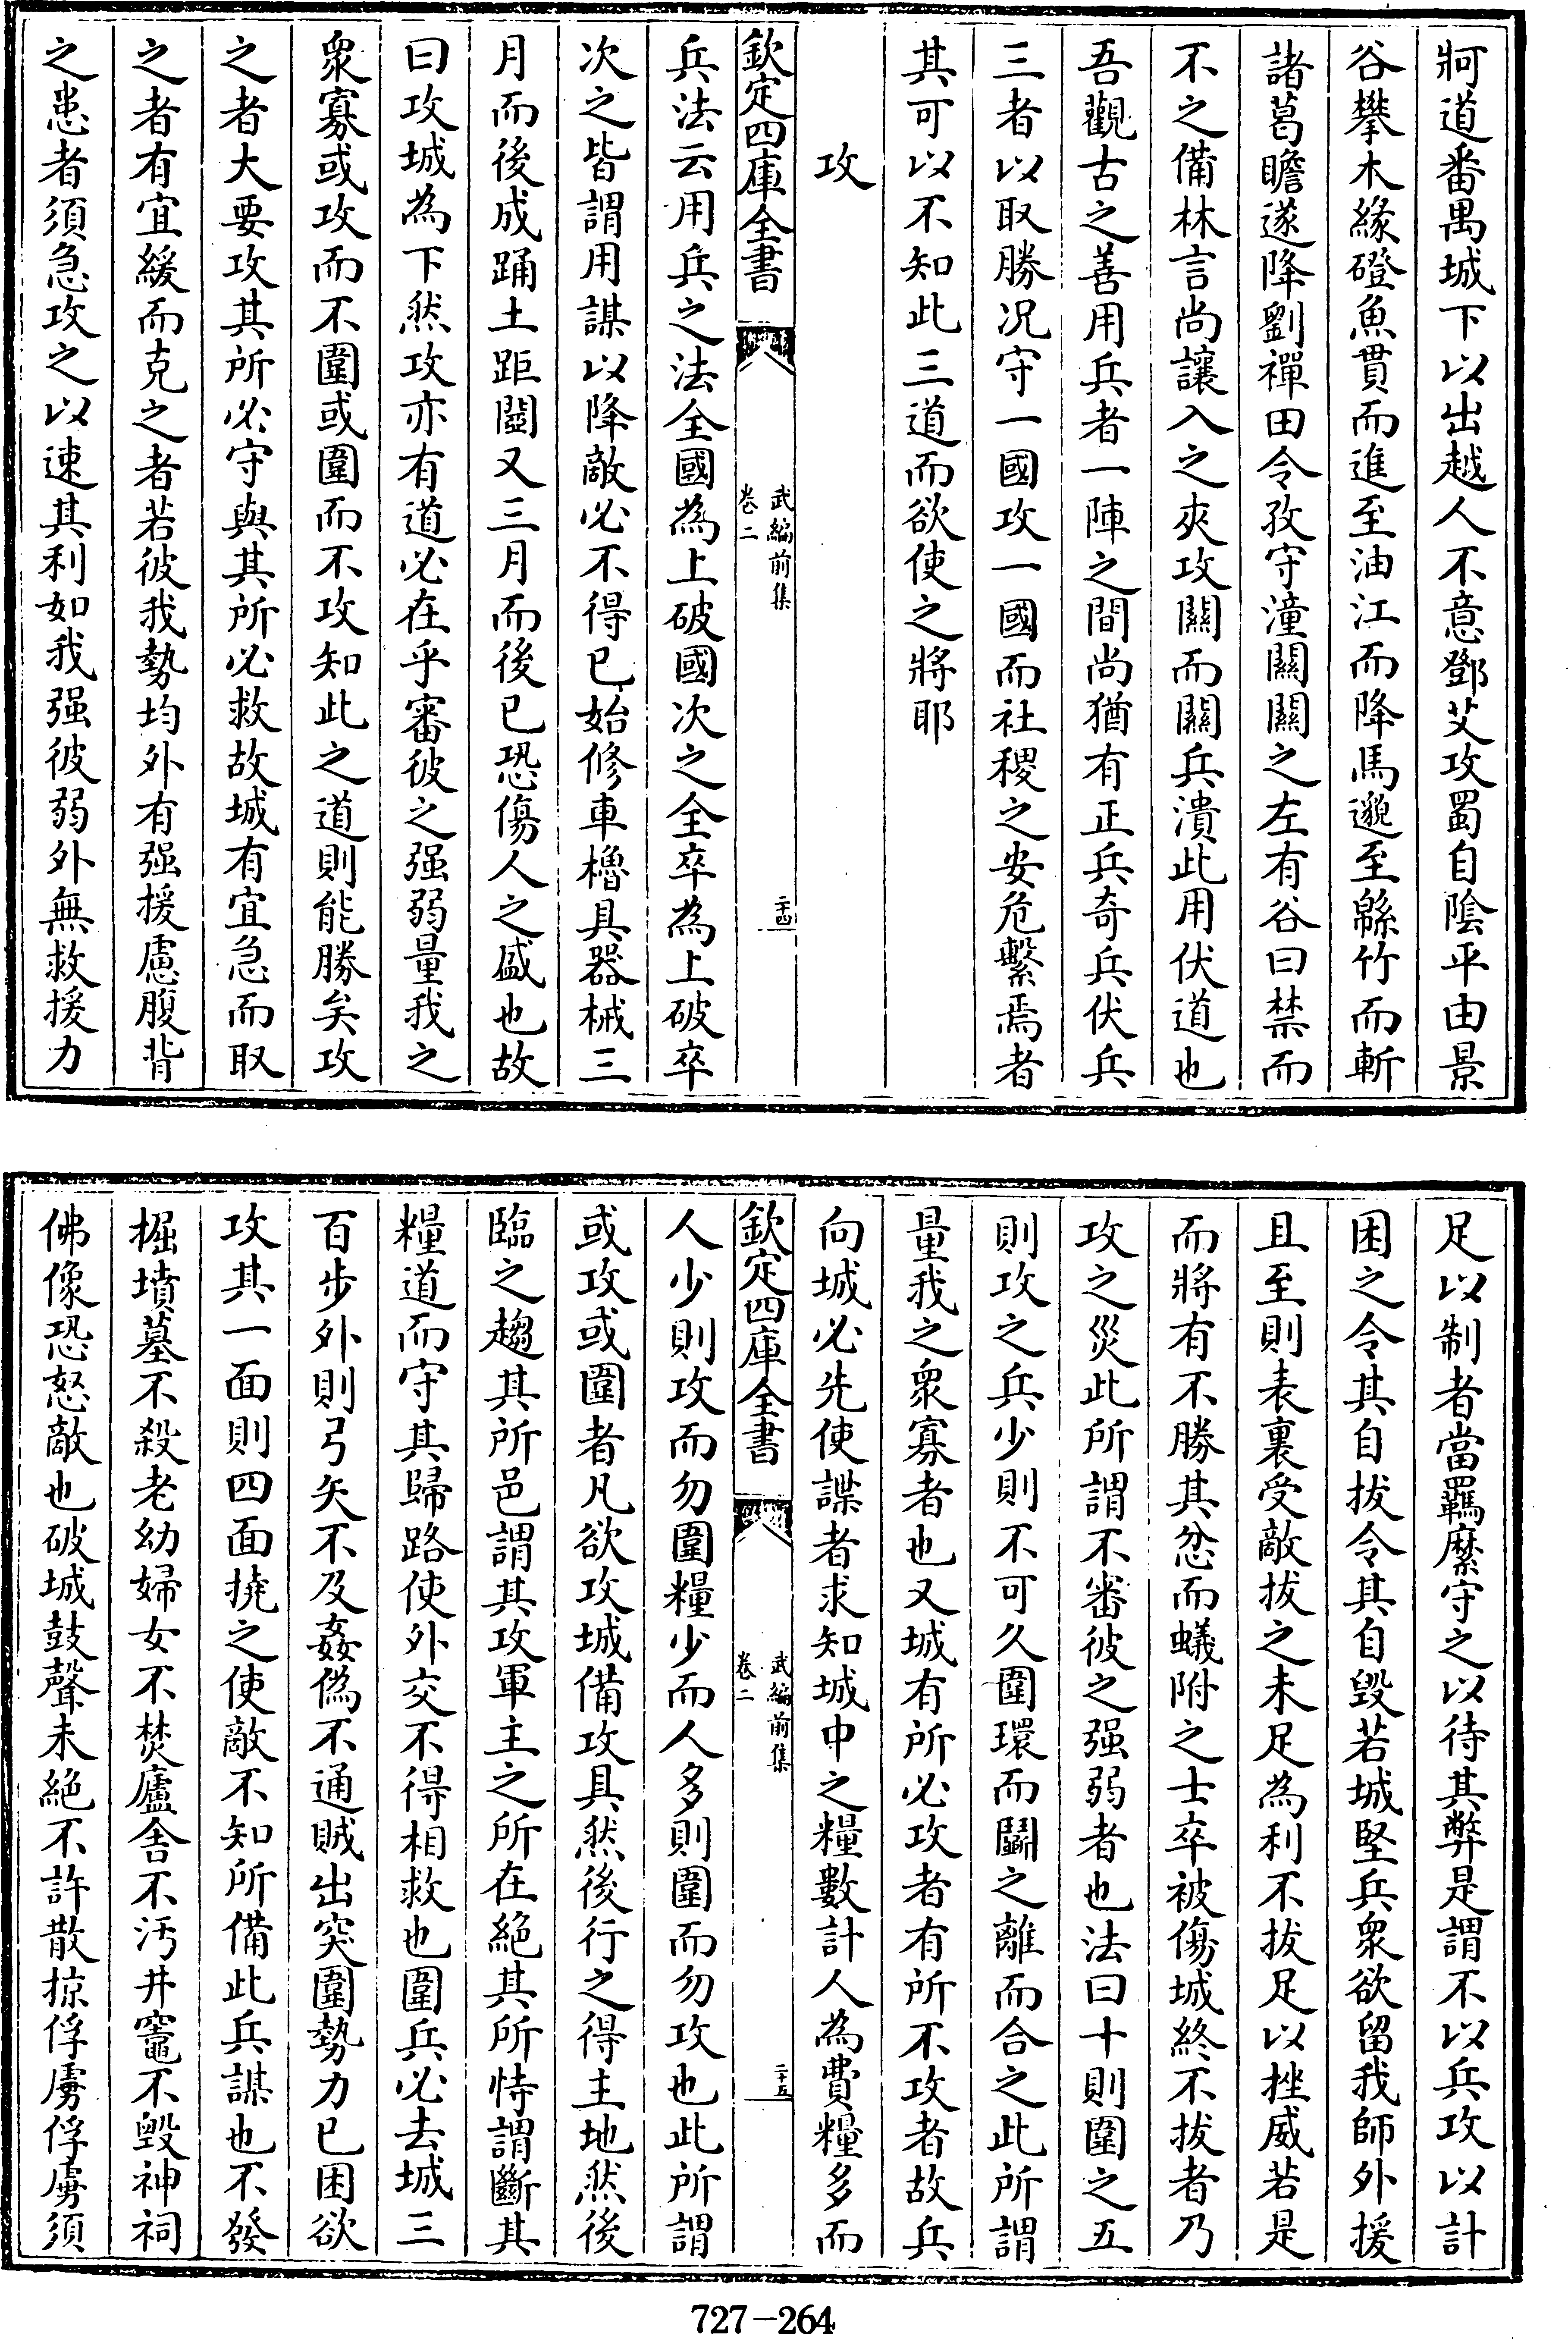 牁道番禺城下以出越人不意鄧艾攻蜀自陰平由景
谷攀木緣磴魚貫而進至油江而降馬邈至緜竹而斬
諸葛瞻遂降劉禪田令孜守潼關關之左有谷曰禁而
不之備林言尚讓入之夾攻關而關兵潰此用伏道也
吾觀古之善用兵者一陣之間尚猶有正兵奇兵伏兵
三者以取勝况守一國攻一國而社稷之安危繫焉者
其可以不知此三道而欲使之將耶
攻
欽定四庫全書
武編前集
卷二
二十四
兵法云用兵之法全國為上破國次之全卒為上破卒
次之皆謂用謀以降敵必不得已始修車櫓具器械三
月而後成踊土距闉又三月而後已恐傷人之盛也故
曰攻城為下然攻亦有道必在乎審彼之强弱量我之
衆寡或攻而不圍或圍而不攻知此之道則能勝矣攻
之者大要攻其所必守與其所必救故城有宜急而取
之者有宜緩而克之者若彼我勢均外有强援慮腹背
之患者須急攻之以速其利如我强彼弱外無救援力
足以制者當羈縻守之以待其弊是謂不以兵攻以計
困之令其自拔令其自毁若城堅兵衆欲留我師外援
且至則表裏受敵拔之未足為利不拔足以挫威若是
而將有不勝其忿而蟻附之士卒被傷城終不拔者乃
攻之災此所謂不審彼之强弱者也法曰十則圍之五
則攻之兵少則不可久圍環而鬭之離而合之此所謂
量我之衆寡者也又城有所必攻者有所不攻者故兵
向城必先使諜者求知城中之糧數計人為費糧多而
欽定四庫全書
武編前集
卷二
二十五
人少則攻而勿圍糧少而人多則圍而勿攻也此所謂
或攻或圍者凡欲攻城備攻具然後行之得主地然後
臨之趨其所邑謂其攻軍主之所在絕其所恃謂斷其
糧道而守其歸路使外交不得相救也圍兵必去城三
百步外則弓矢不及姦偽不通賊出突圍勢力已困欲
攻其一面則四面撓之使敵不知所備此兵謀也不發
掘墳墓不殺老幼婦女不焚廬舍不汚井竈不毁神祠
佛像恐怒敵也破城鼓聲未絕不許散掠俘虜俘虜須
727-264